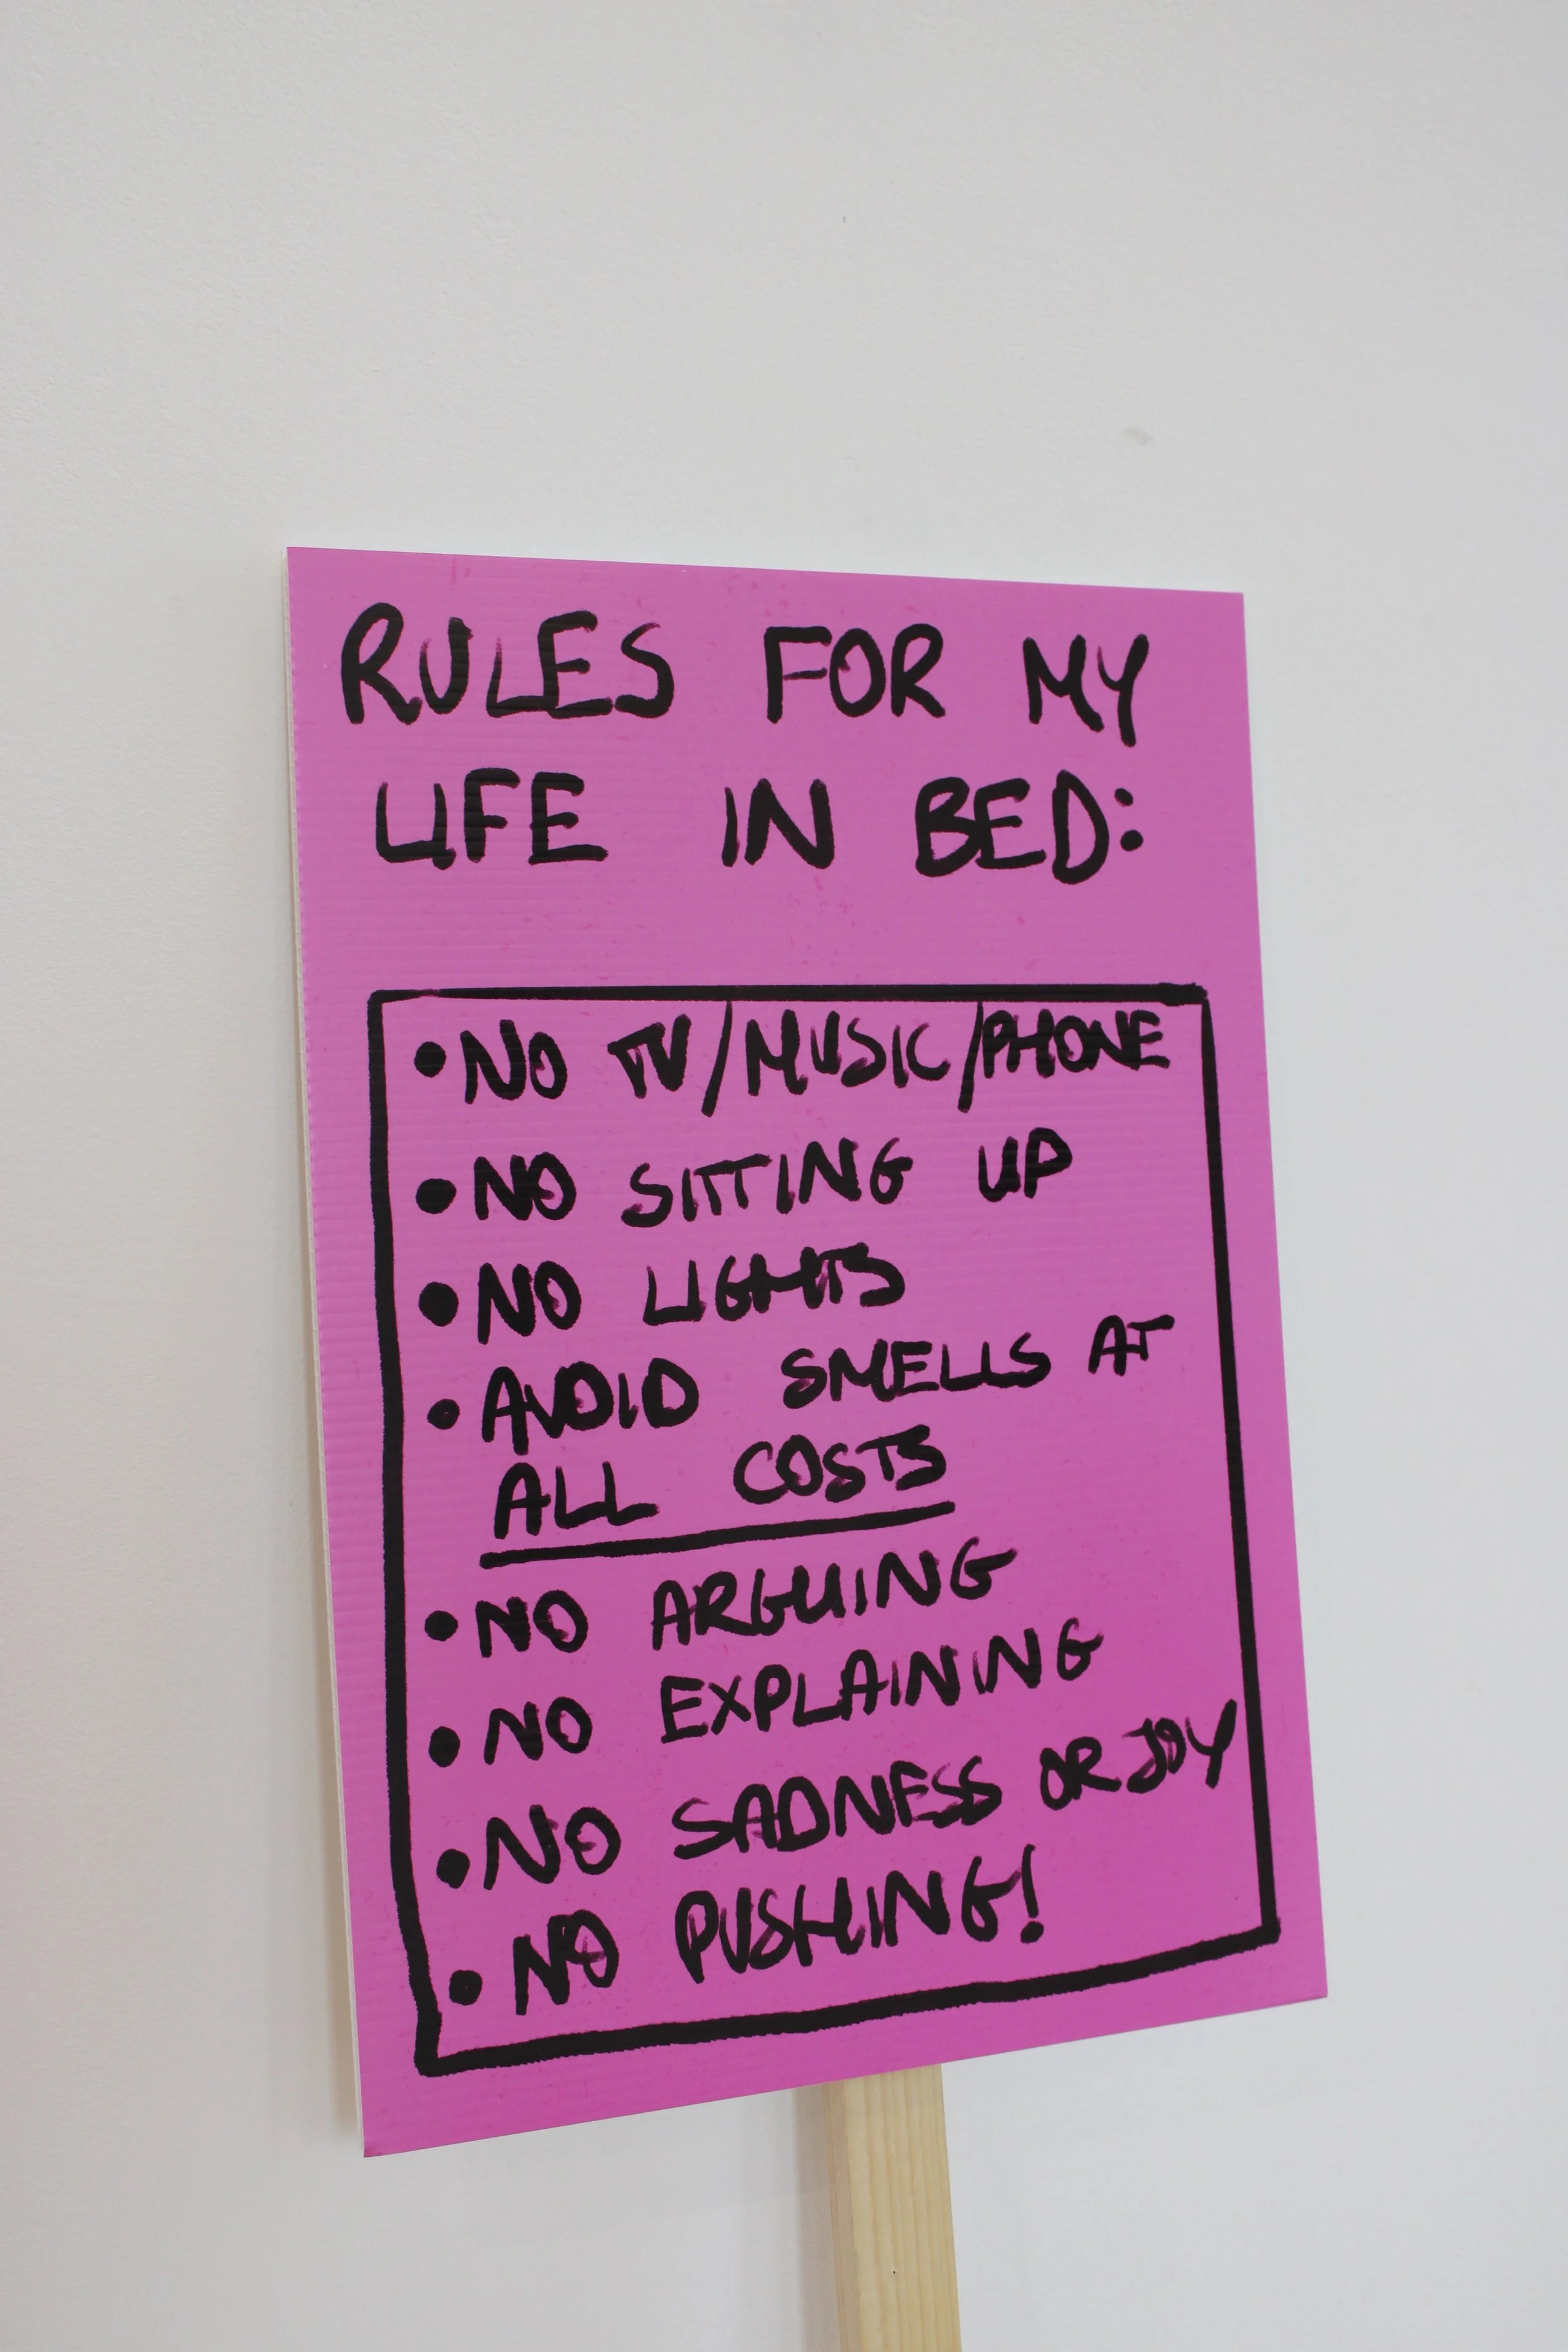 RULES FOR MY
LIFE IN BED:
• NO TV/MUSIC/PHONE
• NO SITTING UP
• NO LIGHTS
• AVOID SMELLS AT
ALL COSTS
• NO ARGUING
• NO EXPLAINING
• NO SADNESS OR JOY
• NO PUSHING!